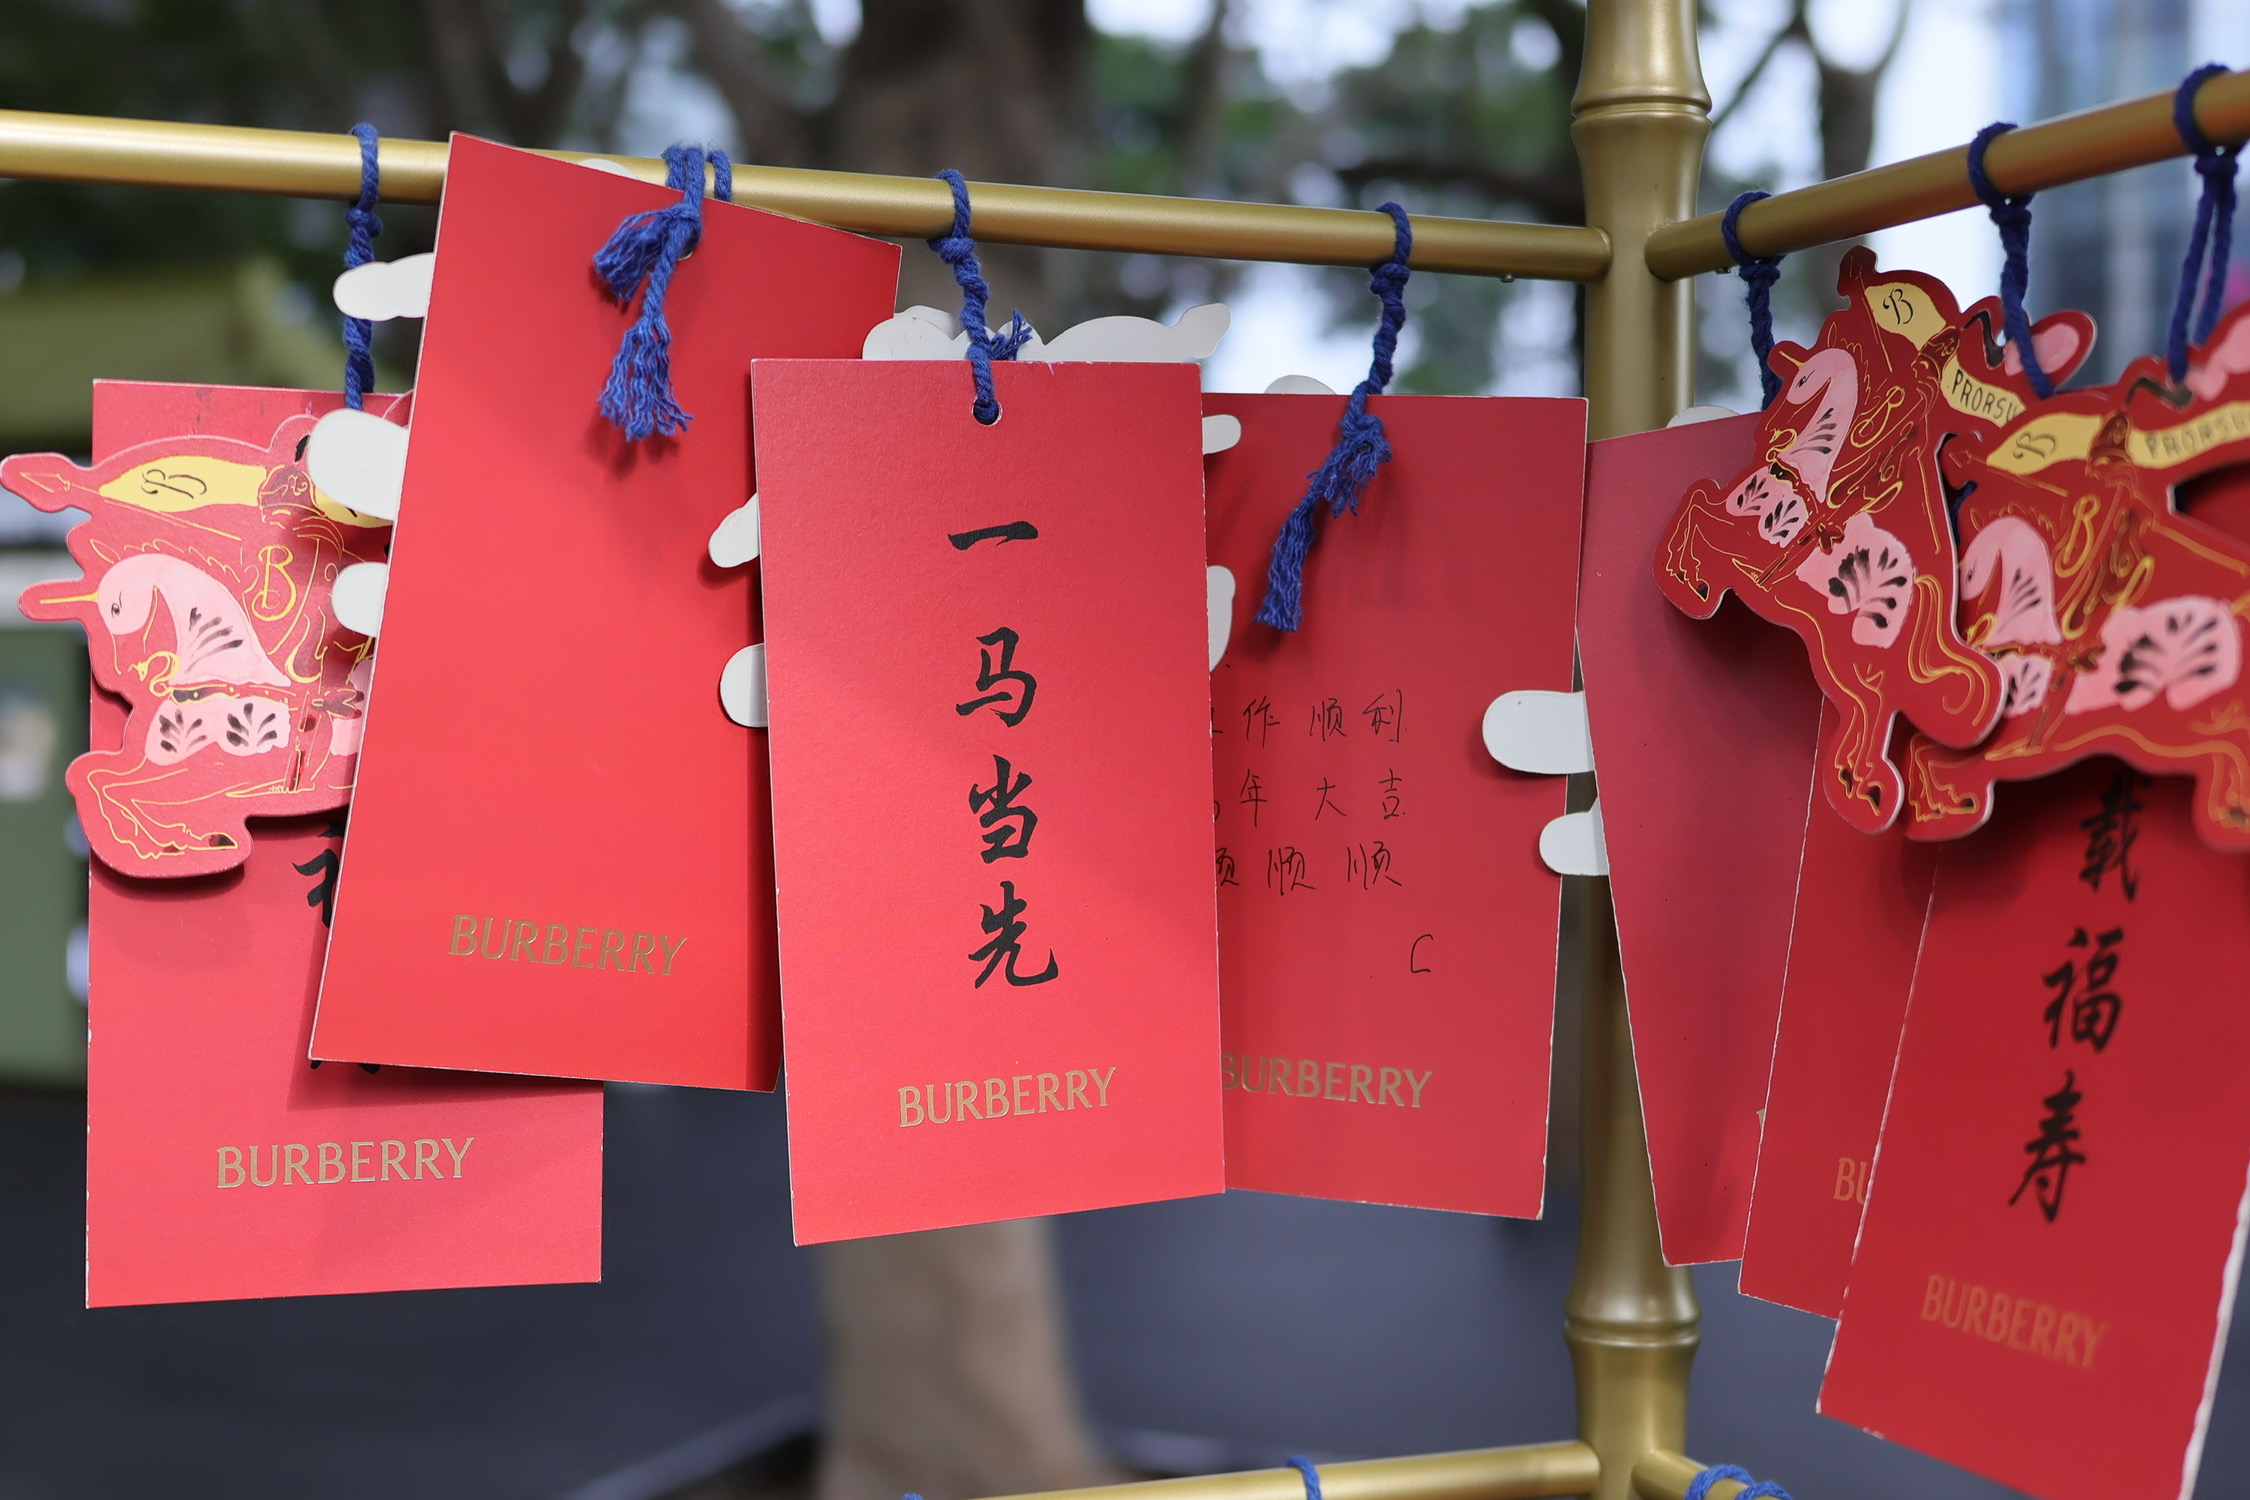 B
B
BURBERRY
BURBERRY
一马当先
BURBERRY
作顺利
年大吉
顺顺
C
BURBERRY
B
PRORSU
B
B
PRORSU
B
BU
载福寿
BURBERRY